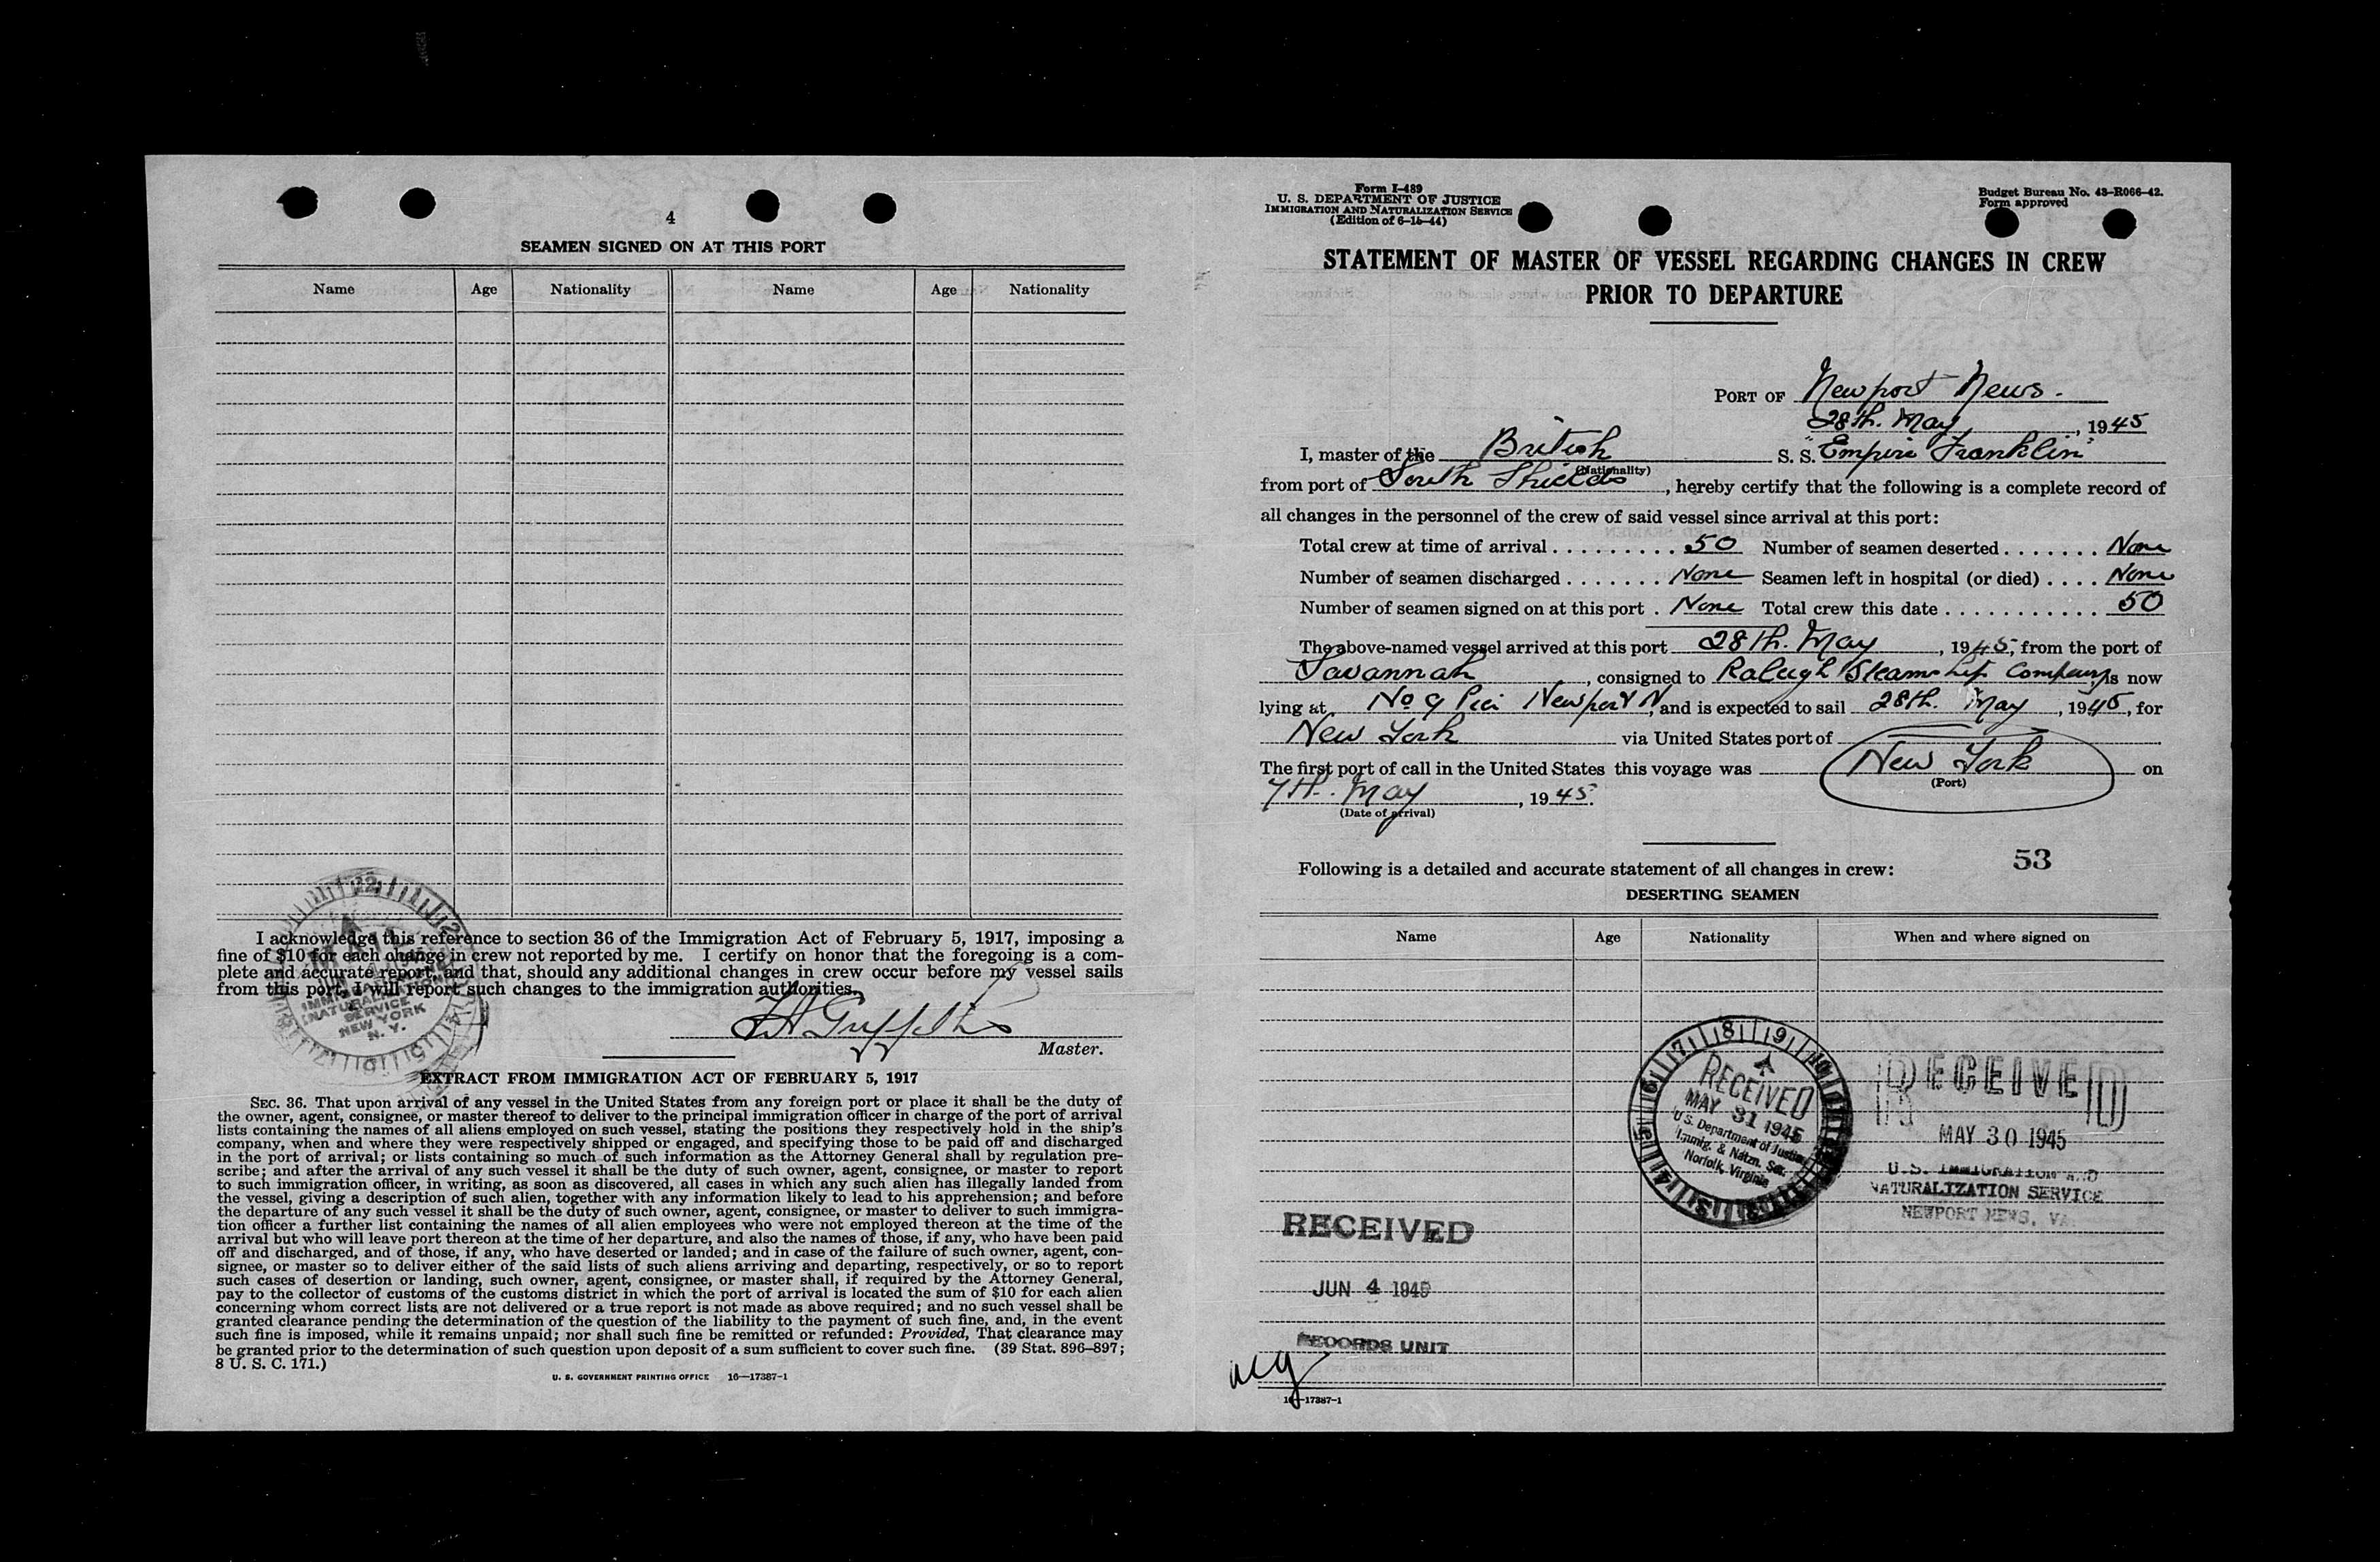 4
SEAMEN SIGNED ON AT THIS PORT
Name Age Nationality Name Age Nationality
I acknowledge this reference to section 36 of the Immigration Act of February 5, 1917, imposing a
fine of $10 for each change in crew not reported by me. I certify on honor that the foregoing is a com-
plete and accurate report, and that, should any additional changes in crew occur before my vessel sails
from this port, I will report such changes to the immigration authorities.
IMMIGRATION
NATURALIZATION
SERVICE
NEW YORK
N. Y.
Master.
EXTRACT FROM IMMIGRATION ACT OF FEBRUARY 5, 1917
SEC. 36. That upon arrival of any vessel in the United States from any foreign port or place it shall be the duty of
the owner, agent, consignee, or master thereof to deliver to the principal immigration officer in charge of the port of arrival
lists containing the names of all aliens employed on such vessel, stating the positions they respectively hold in the ship's
company, when and where they were respectively shipped or engaged, and specifying those to be paid off and discharged
in the port of arrival; or lists containing so much of such information as the Attorney General shall by regulation pre-
scribe; and after the arrival of any such vessel it shall be the duty of such owner, agent, consignee, or master to report
to such immigration officer, in writing, as soon as discovered, all cases in which any such alien has illegally landed from
the vessel, giving a description of such alien, together with any information likely to lead to his apprehension; and before
the departure of any such vessel it shall be the duty of such owner, agent, consignee, or master to deliver to such immigra-
tion officer a further list containing the names of all alien employees who were not employed thereon at the time of the
arrival but who will leave port thereon at the time of her departure, and also the names of those, if any, who have been paid
off and discharged, and of those, if any, who have deserted or landed; and in case of the failure of such owner, agent, con-
signee, or master so to deliver either of the said lists of such aliens arriving and departing, respectively, or so to report
such cases of desertion or landing, such owner, agent, consignee, or master shall, if required by the Attorney General,
pay to the collector of customs of the customs district in which the port of arrival is located the sum of $10 for each alien
concerning whom correct lists are not delivered or a true report is not made as above required; and no such vessel shall be
granted clearance pending the determination of the question of the liability to the payment of such fine, and, in the event
such fine is imposed, while it remains unpaid; nor shall such fine be remitted or refunded: Provided, That clearance may
be granted prior to the determination of such question upon deposit of a sum sufficient to cover such fine. (39 Stat. 896–897;
8 U. S. C. 171.)
U. S. GOVERNMENT PRINTING OFFICE 16—17387-1
Form I-489
U. S. DEPARTMENT OF JUSTICE
IMMIGRATION AND NATURALIZATION SERVICE
(Edition of 6-15-44)
Budget Bureau No. 43-R066-42.
Form approved
STATEMENT OF MASTER OF VESSEL REGARDING CHANGES IN CREW
PRIOR TO DEPARTURE
PORT OF Newport News.
28th. May, 1945
I, master of the British S. S. "Empire Franklin"
(Nationality)
from port of South Shields, hereby certify that the following is a complete record of
all changes in the personnel of the crew of said vessel since arrival at this port:
Total crew at time of arrival . . . . . . . . . 50 Number of seamen deserted . . . . . . . None
Number of seamen discharged . . . . . . . None Seamen left in hospital (or died) . . . . None
Number of seamen signed on at this port . None Total crew this date . . . . . . . . . . . . 50
The above-named vessel arrived at this port 28th. May, 1945, from the port of
Savannah, consigned to Raleigh Steamship Company, is now
lying at No 9 Pier Newport N, and is expected to sail 28th. May, 1945, for
New York via United States port of
The first port of call in the United States this voyage was New York on
(Port)
7th. May, 1945.
(Date of arrival)
Following is a detailed and accurate statement of all changes in crew: 53
DESERTING SEAMEN
Name Age Nationality When and where signed on
RECEIVED
MAY 31 1945
U. S. Department of Justice
Immig. & Natzn. Ser.
Norfolk, Virginia
RECEIVED
MAY 30 1945
U.S. IMMIGRATION AND
NATURALIZATION SERVICE
NEWPORT NEWS, VA.
RECEIVED
JUN 4 1945
RECORDS UNIT
16—17387-1